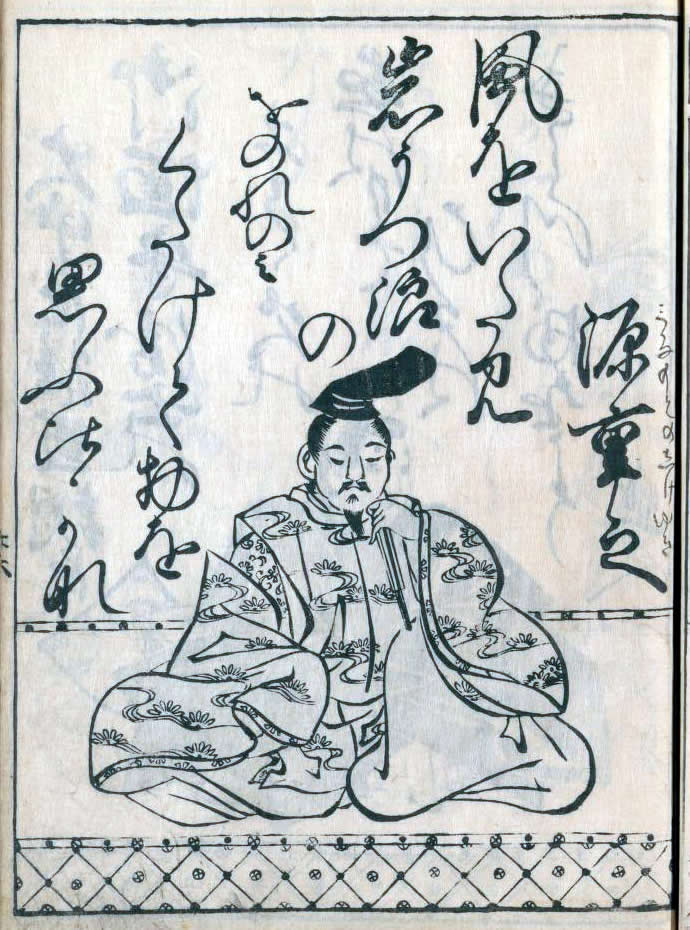 みなもとのしけゆき
源重之
風をいた見
岩うつ浪
の
をのれのミ
くたけて物を
思ふ比かな